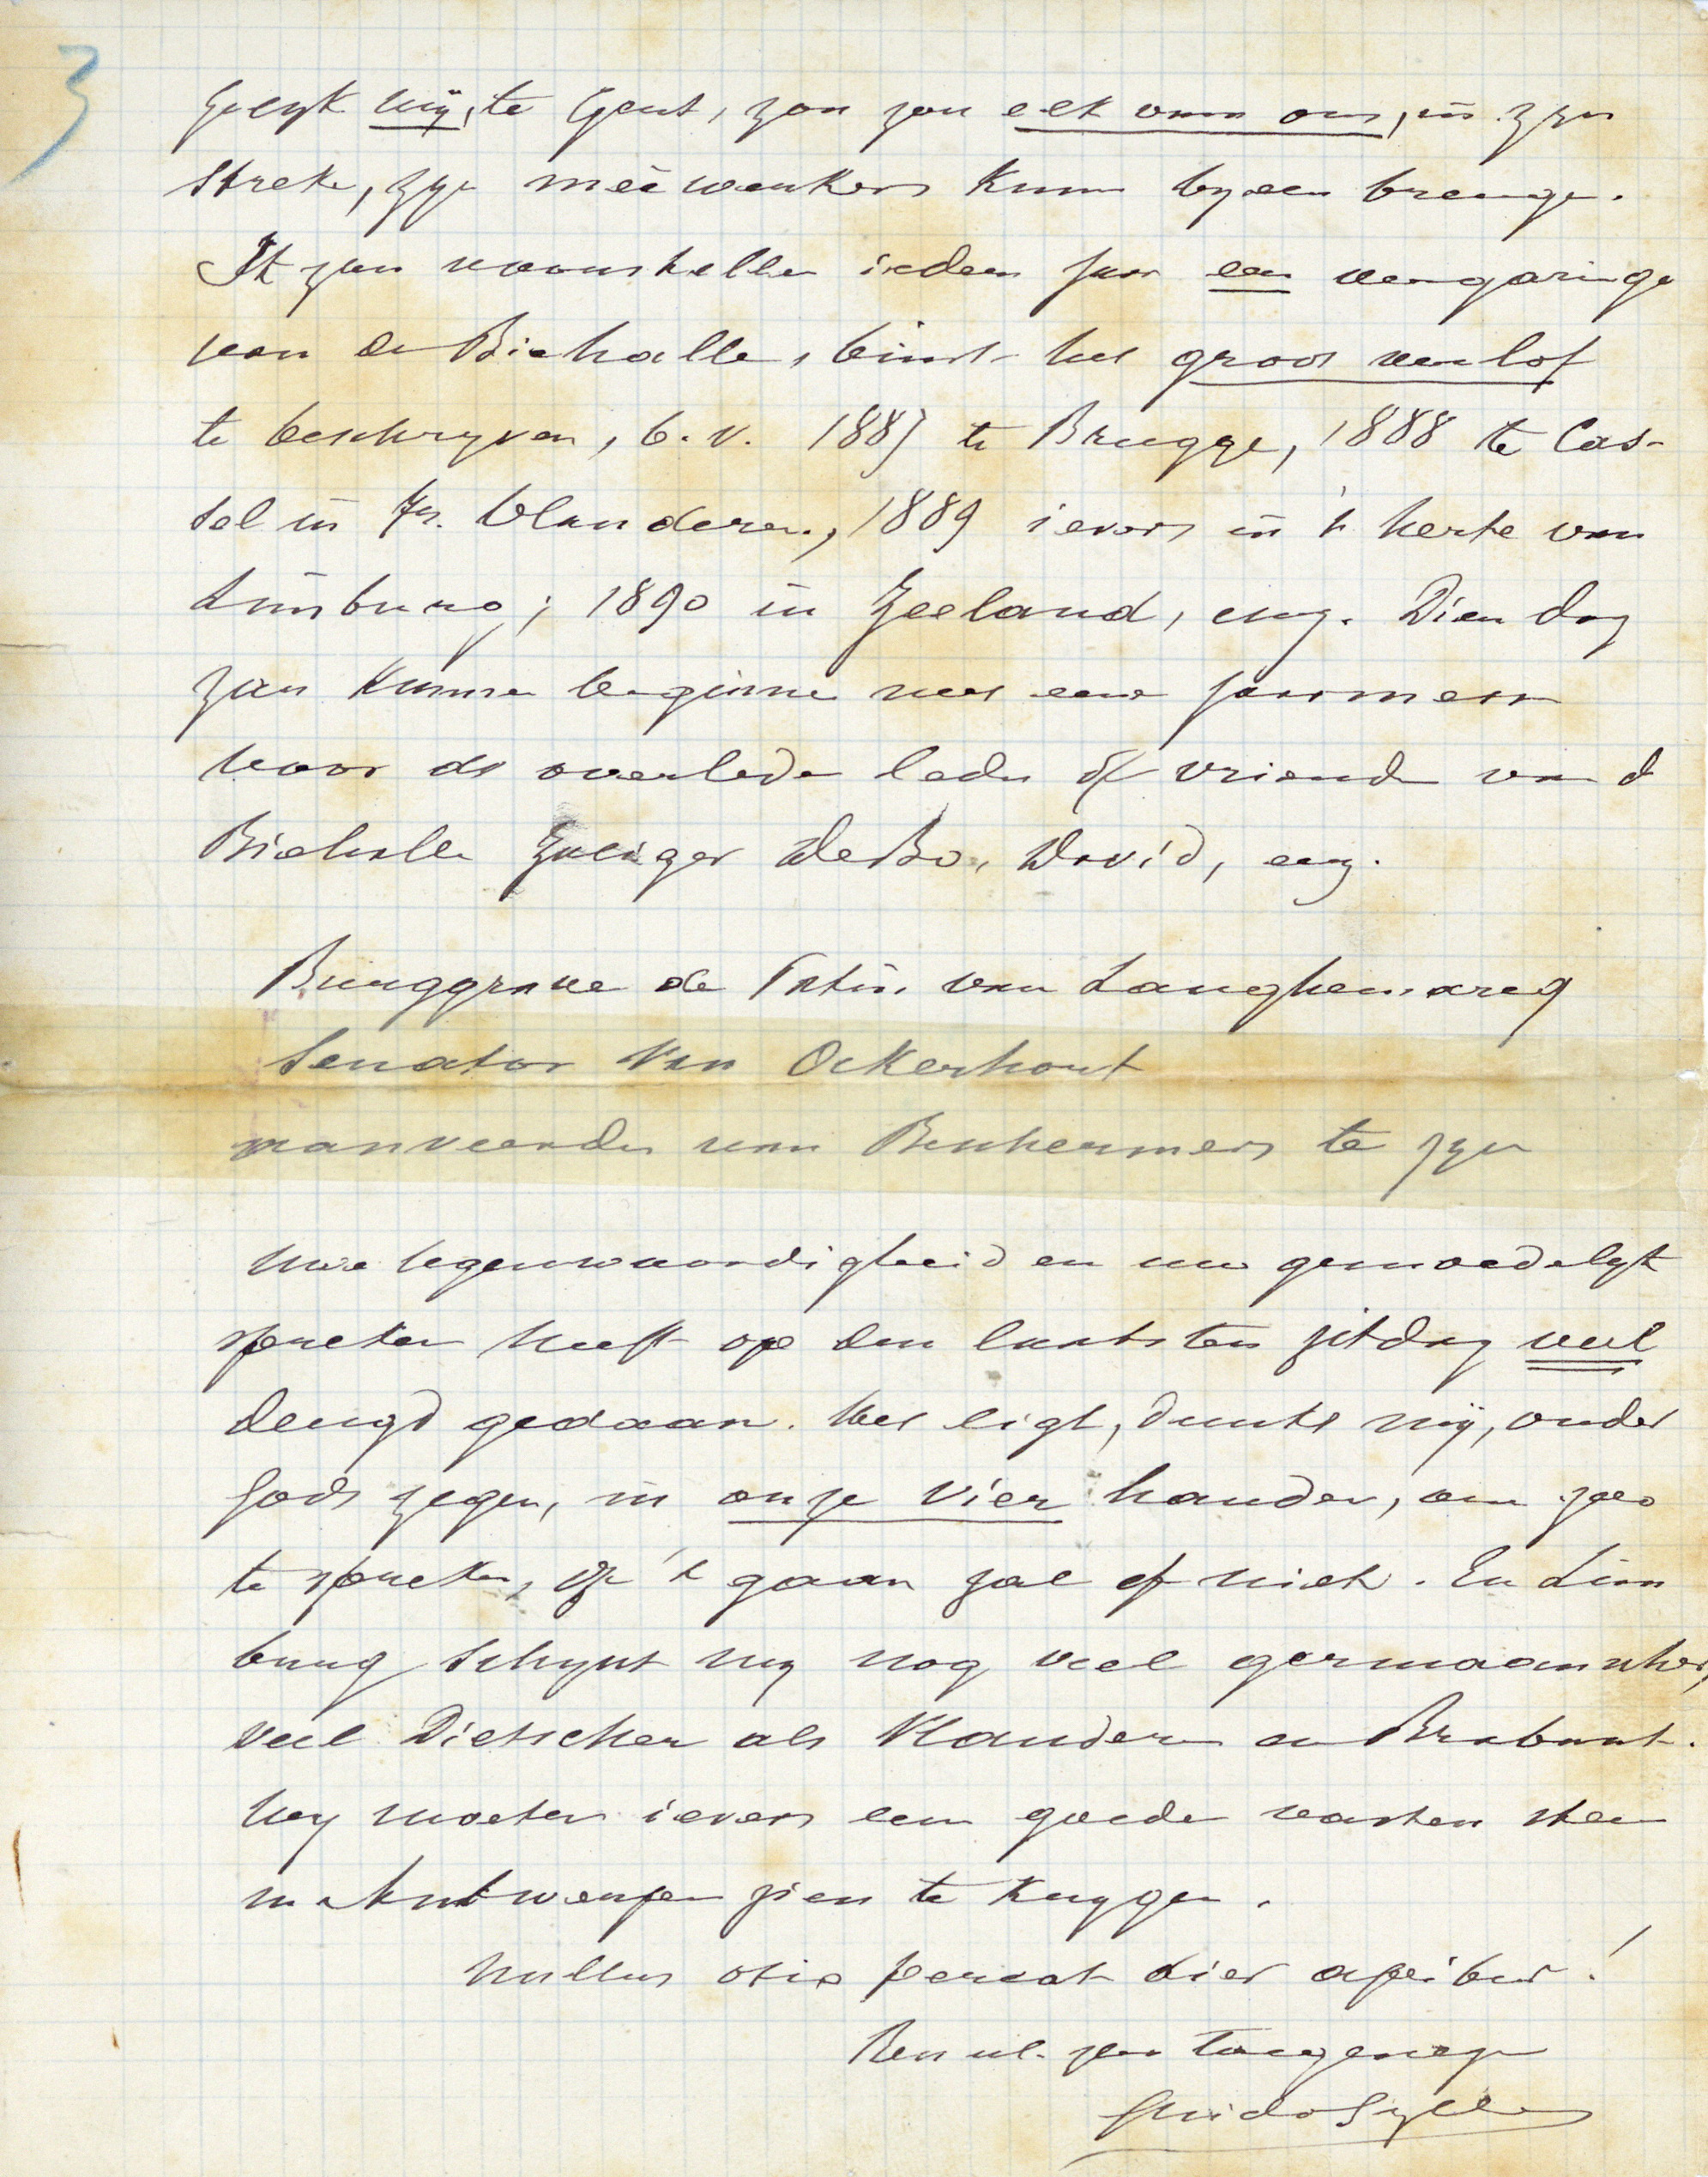 3
Gelyk wij, te Gent, zoo zou elk van ons, in zyn
streke, zyn meêwerkers kunn byeen brenge.
Ik zou voorstellen ieder jaar een vergaringe
van de Biehalle, binst het groot verlof
te beschryven, b.v. 1887 te Brugge, 1888 te Cas-
sel in Fr. Vlanderen, 1889 ievers in 't herte van
Limburg; 1890 in Zeeland, enz. Dien dag
zou kunnen beginnen met eene jaarmesse
voor de overleden leden & vrienden van de
Biehalle zaliger De Bo, David, enz.
Burggrave de Patin van Langhemarcq
Senator Van Ockerhout
te zyn
Uwe tegenwoordigheid en uw gemoedelyk
spreken heeft op den laatsten zitdag veel
deugd gedaan. Het ligt, dunkt mij, onder
Gods zegen, in onze vier handen, om zoo
te spreken, of 't gaan zal of niet. En Lim
burg schynt my nog veel germaanscher,
veel Dietscher als Vlanderen en Brabant.
Wy moeten ievers een goeden vasten steen
in Antwerpen zien te krygen.
Nullus otio pereat dies apibus!
Ben ul. zeer toegenegen
Guido Gezelle